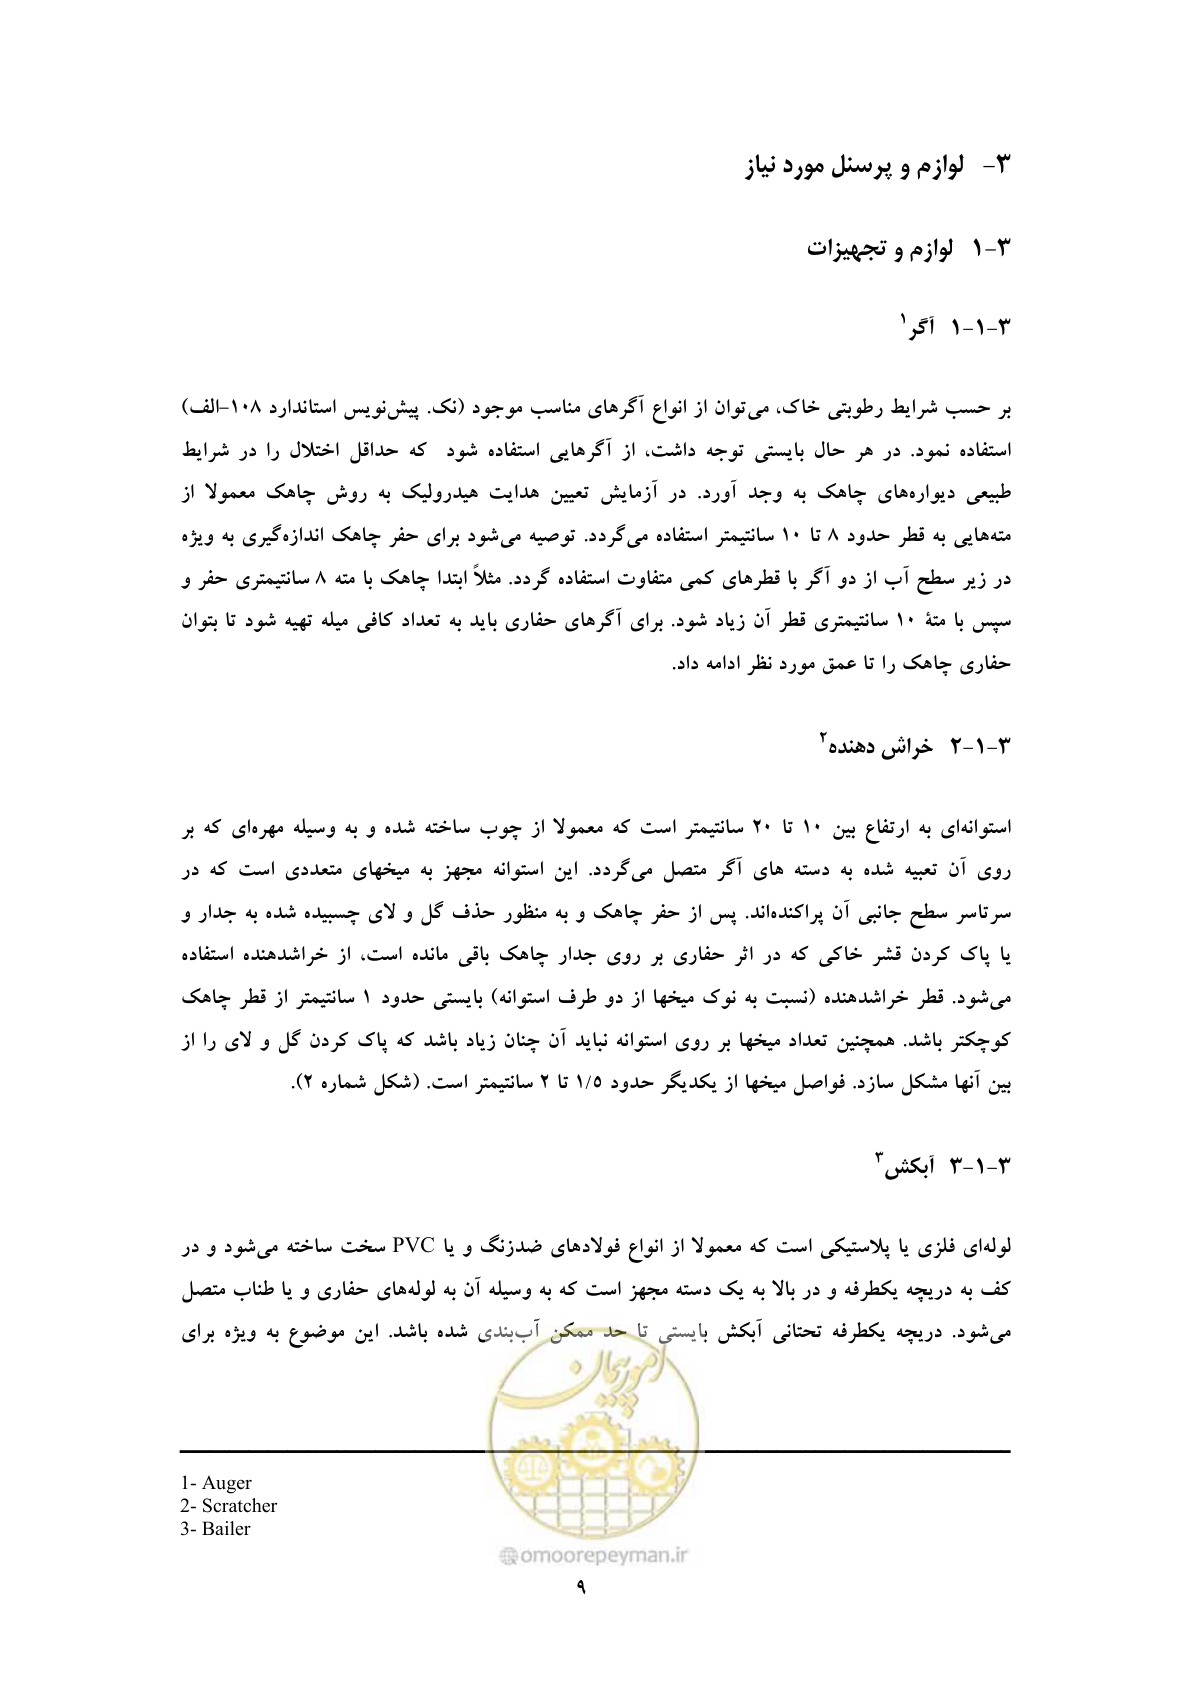 ۳- لوازم و پرسنل مورد نیاز
۳-۱ لوازم و تجهیزات
۳-۱-۱ آگر۱
بر حسب شرایط رطوبتی خاک، می‌توان از انواع آگرهای مناسب موجود (نک. پیش‌نویس استاندارد ۱۰۸-الف)
استفاده نمود. در هر حال بایستی توجه داشت، از آگرهایی استفاده شود که حداقل اختلال را در شرایط
طبیعی دیواره‌های چاهک به وجد آورد. در آزمایش تعیین هدایت هیدرولیک به روش چاهک معمولا از
مته‌هایی به قطر حدود ۸ تا ۱۰ سانتیمتر استفاده می‌گردد. توصیه می‌شود برای حفر چاهک اندازه‌گیری به ویژه
در زیر سطح آب از دو آگر با قطرهای کمی متفاوت استفاده گردد. مثلاً ابتدا چاهک با مته ۸ سانتیمتری حفر و
سپس با متۀ ۱۰ سانتیمتری قطر آن زیاد شود. برای آگرهای حفاری باید به تعداد کافی میله تهیه شود تا بتوان
حفاری چاهک را تا عمق مورد نظر ادامه داد.
۳-۱-۲ خراش دهنده۲
استوانه‌ای به ارتفاع بین ۱۰ تا ۲۰ سانتیمتر است که معمولا از چوب ساخته شده و به وسیله مهره‌ای که بر
روی آن تعبیه شده به دسته های آگر متصل می‌گردد. این استوانه مجهز به میخهای متعددی است که در
سرتاسر سطح جانبی آن پراکنده‌اند. پس از حفر چاهک و به منظور حذف گل و لای چسبیده شده به جدار و
یا پاک کردن قشر خاکی که در اثر حفاری بر روی جدار چاهک باقی مانده است، از خراشدهنده استفاده
می‌شود. قطر خراشدهنده (نسبت به نوک میخها از دو طرف استوانه) بایستی حدود ۱ سانتیمتر از قطر چاهک
کوچکتر باشد. همچنین تعداد میخها بر روی استوانه نباید آن چنان زیاد باشد که پاک کردن گل و لای را از
بین آنها مشکل سازد. فواصل میخها از یکدیگر حدود ۱/۵ تا ۲ سانتیمتر است. (شکل شماره ۲).
۳-۱-۳ آبکش۳
لوله‌ای فلزی یا پلاستیکی است که معمولا از انواع فولادهای ضدزنگ و یا PVC سخت ساخته می‌شود و در
کف به دریچه یکطرفه و در بالا به یک دسته مجهز است که به وسیله آن به لوله‌های حفاری و یا طناب متصل
می‌شود. دریچه یکطرفه تحتانی آبکش بایستی تا حد ممکن آب‌بندی شده باشد. این موضوع به ویژه برای
امور پیمان
1- Auger
2- Scratcher
3- Bailer
@omoorepeyman.ir
۹